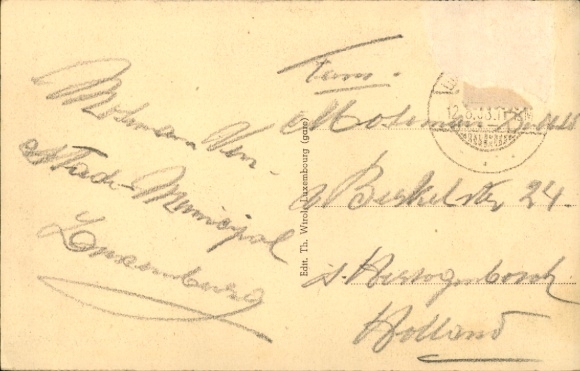 Molsman Ven.
Stade-Municipal
Luxemburg
Edit. Th. Wirol, Luxembourg (gare)
Fam.
Molsman
Berkelstr 24.
s. Hertogenbosch
Holland